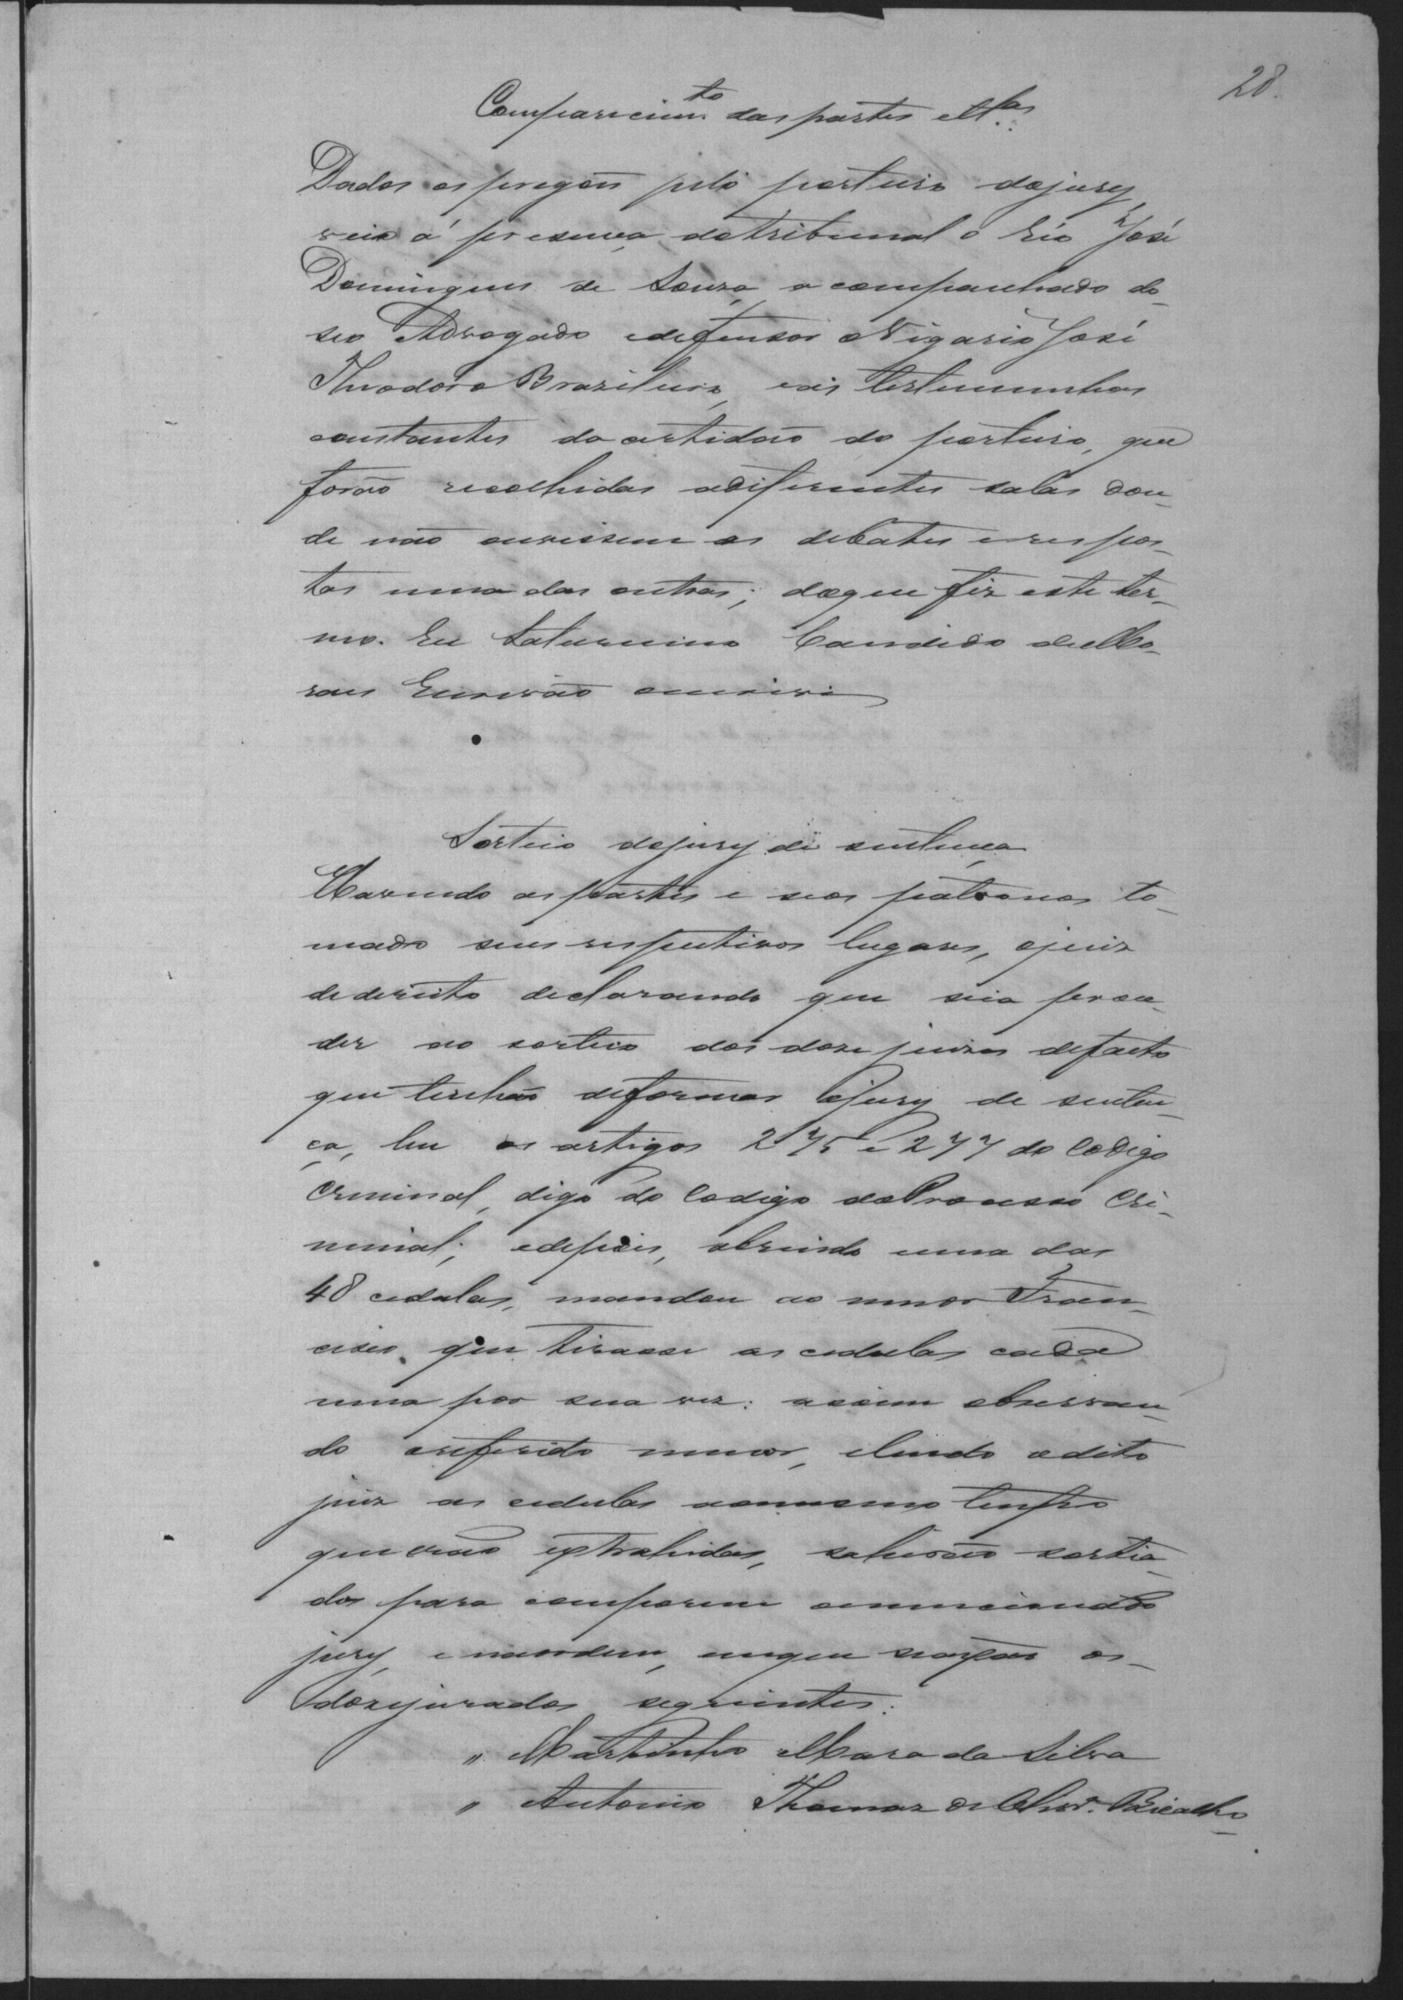 28.
Comparecim.to das partes e tt.as
Dados os pregões pelo porteiro do jury,
veio á presença do tribunal o réo José
Domingues de Souza, acompanhado do
seo Advogado e defensor o Vigario José
Theodoro Brazileiro, e as testemunhas
constantes da certidão do porteiro, que
forão recolhidas a differentes salas don-
de não ouvissem os debates e respos-
tas uma das outras; do que fiz este ter-
mo. Eu Saturnino Candido de Mo-
raes Escrivão escrivi
Sorteio do jury de sentença
Havendo as partes e seos patronos to-
mado seus respectivos lugares, o juiz
de direito declarando que seia proce-
der ao sorteio dos doze juizes de facto
que tinhão de formar o jury de senten-
ça, leu os artigos 275 e 277 do Codigo
Criminal, digo do Codigo do Processo Cri-
minal; e depois, abrindo uma das
48 cedulas, mandou ao menor Fran-
cisco que tirasse as cedulas cada
uma por sua vez: assim observan-
do o referido menor, e lendo o dito
juiz as cedulas ao mesmo tempo
que erão extrahidas, sahirão sortia-
dos para comporem o mencionado
jury, e na ordem, em que vão os
doze jurados seguintes:
" Martinho Mara da Silva
" Antonio Thomaz de Olivr.a Bicalho